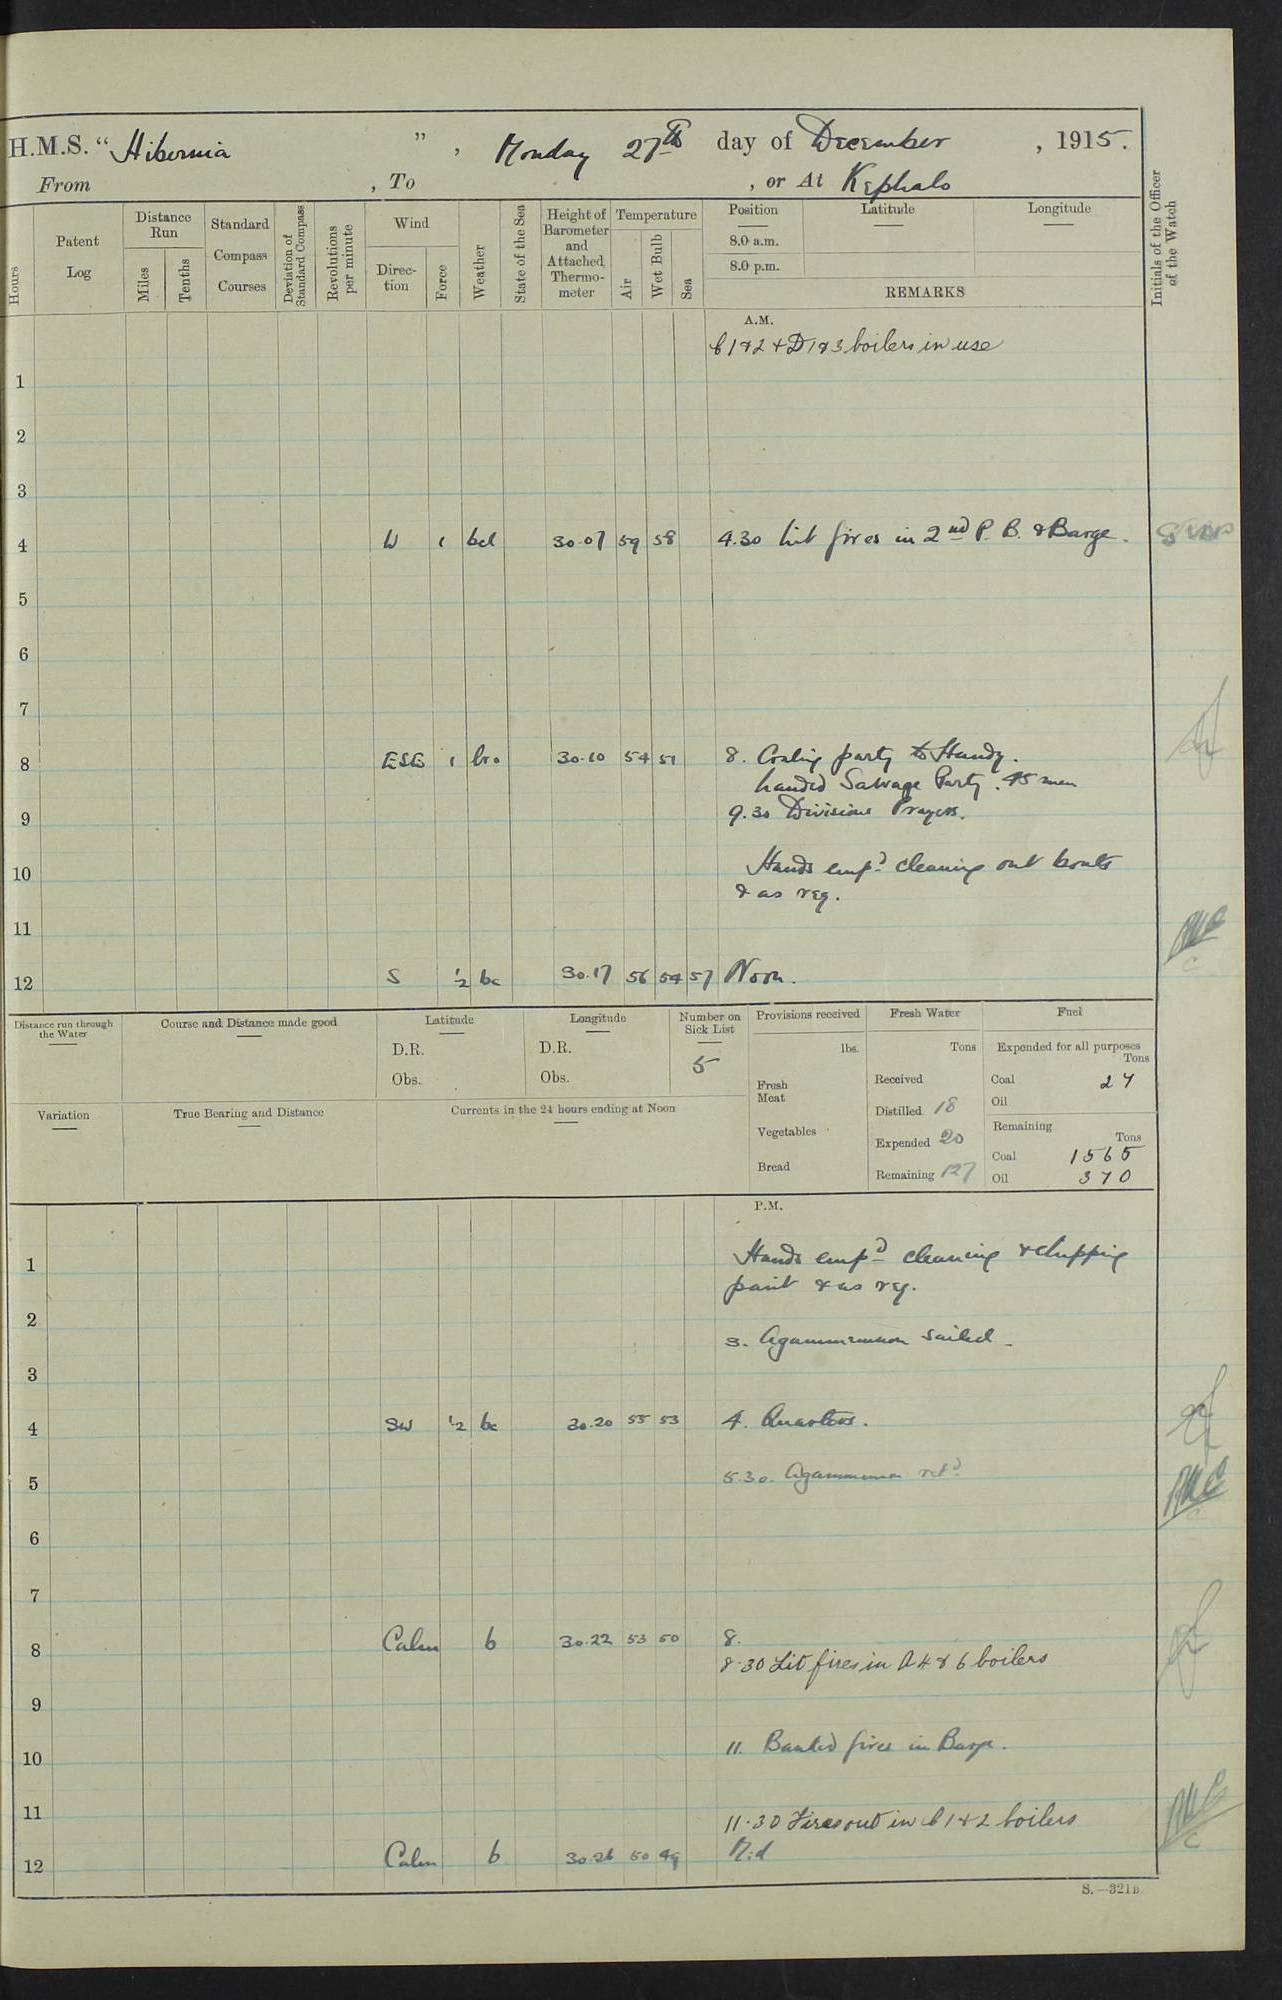 H.M.S. “Hibernia”, Monday 27th day of December, 1915.
From , To , or At Kephalo
Hours
Patent Log
Distance Run
Miles
Tenths
Standard Compass Courses
Deviation of Standard Compass
Revolutions per minute
Wind
Direc-tion
Force
Weather
State of the Sea
Height of Barometer and Attached Thermo-meter
Temperature
Air
Wet Bulb
Sea
Position
8.0 a.m.
8.0 p.m.
Latitude
Longitude
REMARKS
Initials of the Officer of the Watch
A.M.
C 1 & 2 & D 1 & 3 boilers in use
1
2
3
4 W 1 bcl 30.07 59 58 4.30 Lit fires in 2nd P. B. & Barge.
5
6
7
8 ESE 1 bro 30.10 54 51 8. Coaling party to Handy.
Landed Salvage Party. 45 men
9 9.30 Divisions Prayers.
10 Hands emp'd cleaning out boats
& as req.
11
12 S ½ bc 30.17 56 54 57 Noon.
Distance run through the Water
Course and Distance made good
Latitude
D.R.
Obs.
Longitude
D.R.
Obs.
Number on Sick List
5
Provisions received
lbs.
Fresh Meat
Vegetables
Bread
Fresh Water
Tons
Received
Distilled 18
Expended 20
Remaining 127
Fuel
Expended for all purposes
Tons
Coal 27
Oil
Remaining
Tons
Coal 1565
Oil 370
Variation
True Bearing and Distance
Currents in the 24 hours ending at Noon
P.M.
1 Hands emp'd cleaning & chipping
paint & as req.
2
3. Agamemnon sailed.
3
4 SW ½ bc 30.20 55 53 4. Quarters.
5 5.30. Agamemnon ret'd
6
7
8 Calm b 30.22 53 50 8.
8.30 Lit fires in A 4 & 6 boilers
9
10 11. Banked fires in Barge.
11 11.30 Fires out in C 1 & 2 boilers
12 Calm b 30.26 50 49 Mid
S.—321B.